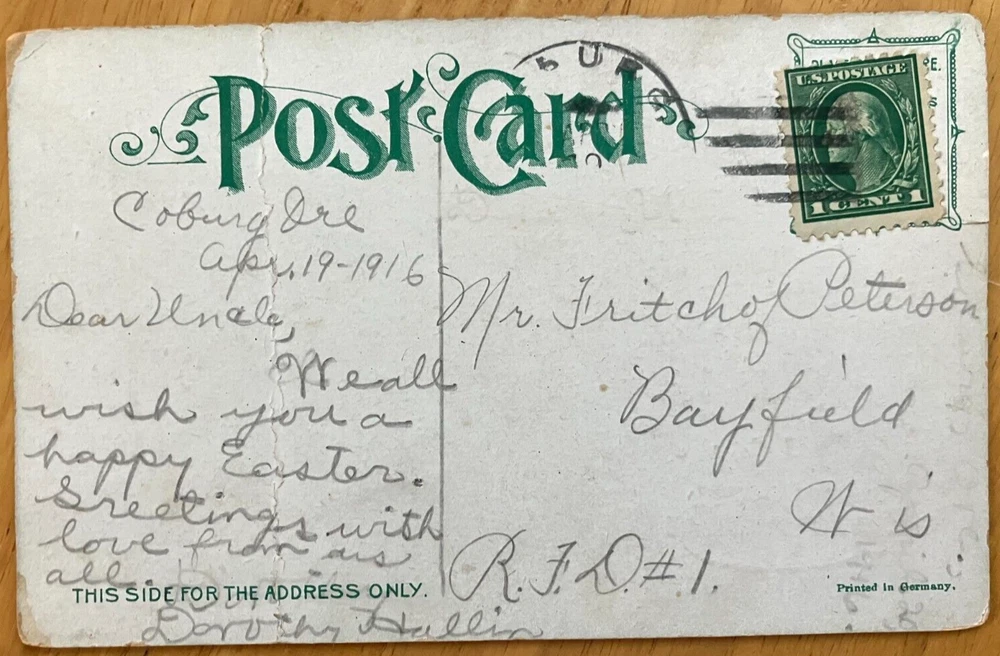 Post Card
U.S. POSTAGE
1 CENT 1
Coburg Ore
Apr. 19-1916
Dear Uncle,
We all
wish you a
happy Easter.
Greetings with
love from us
all.
Dorothy Hallin
Mr. Fritchof Peterson
Bayfield
Wis
R.F.D. #1.
THIS SIDE FOR THE ADDRESS ONLY.
Printed in Germany.